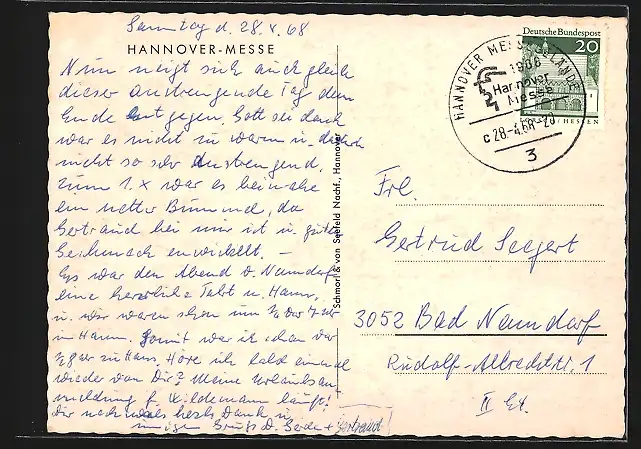 Sonntag d. 28. 4. 68
HANNOVER-MESSE
Nun neigt sich auch gleich
dieser anstrengende Tag dem
Ende entgegen, Gott sei dank
war es nicht zu warm u. dadurch
nicht so sehr anstrengend.
Zum 1. x war es beinahe
ein netter Bummel, da
Gertraud bei mir ist u. guten
Geschmack entwickelt. –
Es war den Abend v. Nenndorf
eine herrliche Fahrt u. Hann.
u. wir waren schon um
in Hann. Somit war ich schon vor
zu Haus. Höre ich bald einmal
wieder von Dir? Meine Urlaubsan
meldung f. Wildemann läuft!
Dir nochmals herzl. Dank u.
innigen Gruß D. Gerda + Gertraud
Schmorl & von Seefeld Nachf., Hannover
HANNOVER MESSEGELÄNDE
1968
Hannover
Messe
c 28.-4.68-20
3
Deutsche Bundespost
20
HESSEN
Frl.
Gertrud Seegert
3052 Bad Nenndorf
Rudolf-Albrechtstr. 1
II Et.